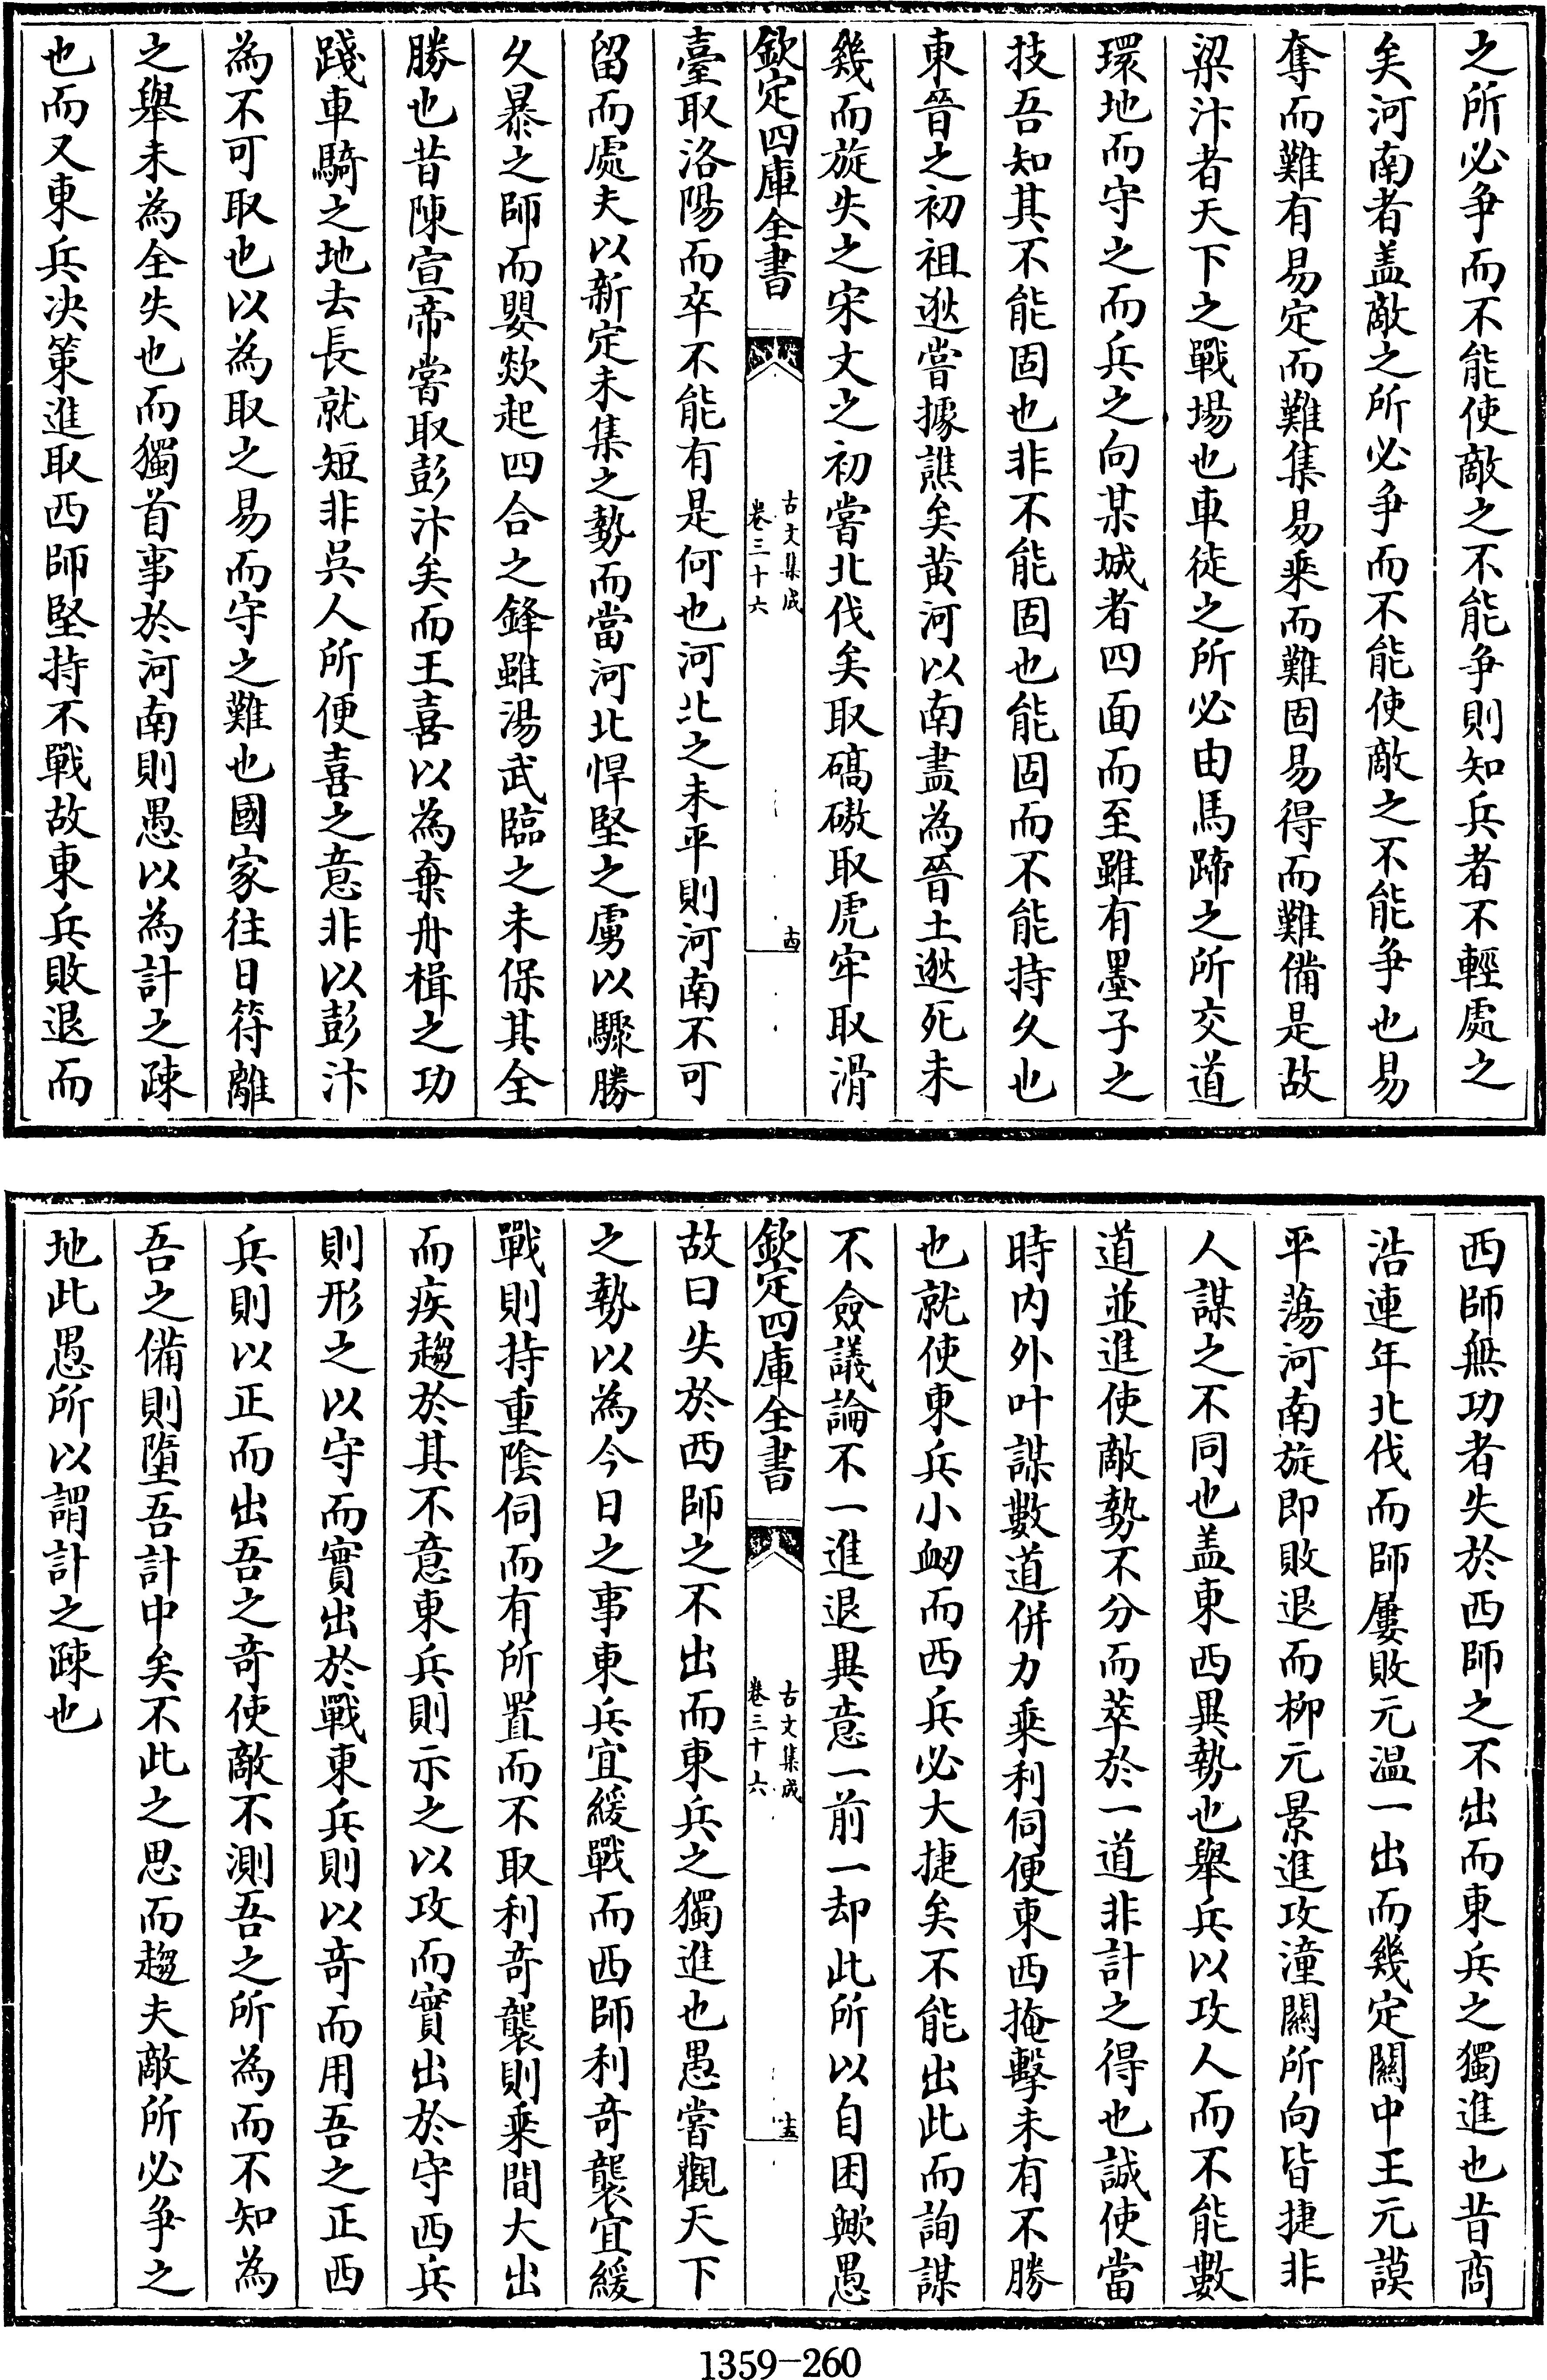 之所必争而不能使敵之不能争則知兵者不輕處之
矣河南者盖敵之所必争而不能使敵之不能争也易
奪而難有易定而難集易乘而難固易得而難備是故
梁汴者天下之戰場也車徒之所必由馬蹄之所交道
環地而守之而兵之向某城者四面而至雖有墨子之
技吾知其不能固也非不能固也能固而不能持久也
東晉之初祖逖嘗據譙矣黄河以南盡為晉土逖死未
幾而旋失之宋文之初嘗北伐矣取碻磝取虎牢取滑
欽定四庫全書
古文集成
卷三十六
十四
臺取洛陽而卒不能有是何也河北之未平則河南不可
留而處夫以新定未集之勢而當河北悍堅之虜以驟勝
久暴之師而嬰欻起四合之鋒雖湯武臨之未保其全
勝也昔陳宣帝嘗取彭汴矣而王喜以為棄舟楫之功
踐車騎之地去長就短非吳人所便喜之意非以彭汴
為不可取也以為取之易而守之難也國家往日符離
之舉未為全失也而獨首事於河南則愚以為計之疎
也而又東兵决策進取西師堅持不戰故東兵敗退而
西師無功者失於西師之不出而東兵之獨進也昔商
浩連年北伐而師屢敗元温一出而幾定關中王元謨
平蕩河南旋即敗退而柳元景進攻潼關所向皆捷非
人謀之不同也盖東西異勢也舉兵以攻人而不能數
道並進使敵勢不分而萃於一道非計之得也誠使當
時内外叶謀數道併力乘利伺便東西掩擊未有不勝
也就使東兵小衂而西兵必大捷矣不能出此而詢謀
不僉議論不一進退異意一前一却此所以自困歟愚
欽定四庫全書
古文集成
卷三十六
十五
故曰失於西師之不出而東兵之獨進也愚嘗觀天下
之勢以為今日之事東兵宜緩戰而西師利竒襲宜緩
戰則持重隂伺而有所置而不取利竒襲則乘間大出
而疾趨於其不意東兵則示之以攻而實出於守西兵
則形之以守而實出於戰東兵則以竒而用吾之正西
兵則以正而出吾之竒使敵不測吾之所為而不知為
吾之備則墮吾計中矣不此之思而趨夫敵所必争之
地此愚所以謂計之疎也
1359-260